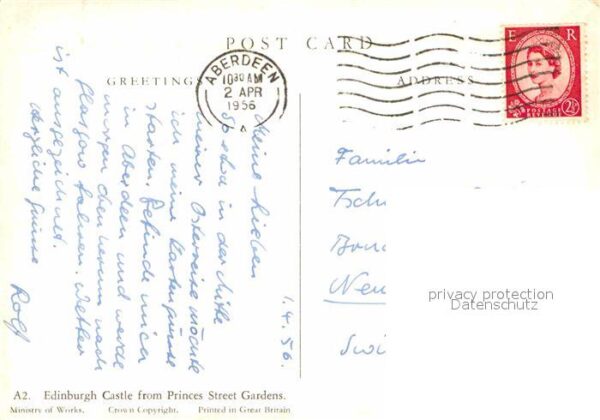 POST CARD
GREETINGS
ADDRESS
ABERDEEN
10 30 AM
2 APR
1956
E R
2½D
POSTAGE
REVENUE
1.4.56.
Meine Lieben
in der Mitte
meiner Osterreise möchte
ich meine Kartengrüsse
starten. Befinde mich
in Aberdeen und werde
morgen nach
Glasgow fahren. Wetter
ist ausgezeichnet.
Herzliche Grüsse
Rolf
Familie
Tsch
Neu
privacy protection
Datenschutz
A2. Edinburgh Castle from Princes Street Gardens.
Ministry of Works. Crown Copyright. Printed in Great Britain